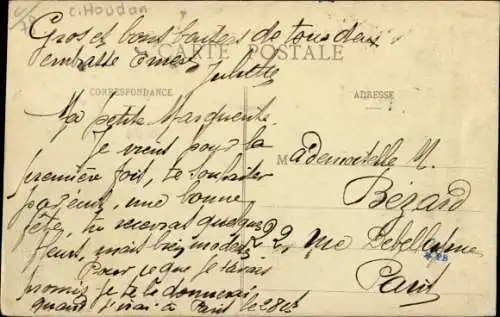 C. Houdan
Gros et bons baisers de tous deux
embrasse Ernest
Juliette
CARTE POSTALE
CORRESPONDANCE
ADRESSE
Ma petite Marguerite
Je viens pour la
première fois, te souhaiter
une bonne
fête, tu recevras quelques
fleurs, mais bien modestes
Pour ce que je t'avais
promis je te le donnerai
quand j'irai à Paris le 28
Mademoiselle M.
Bézard
22, rue
Paris